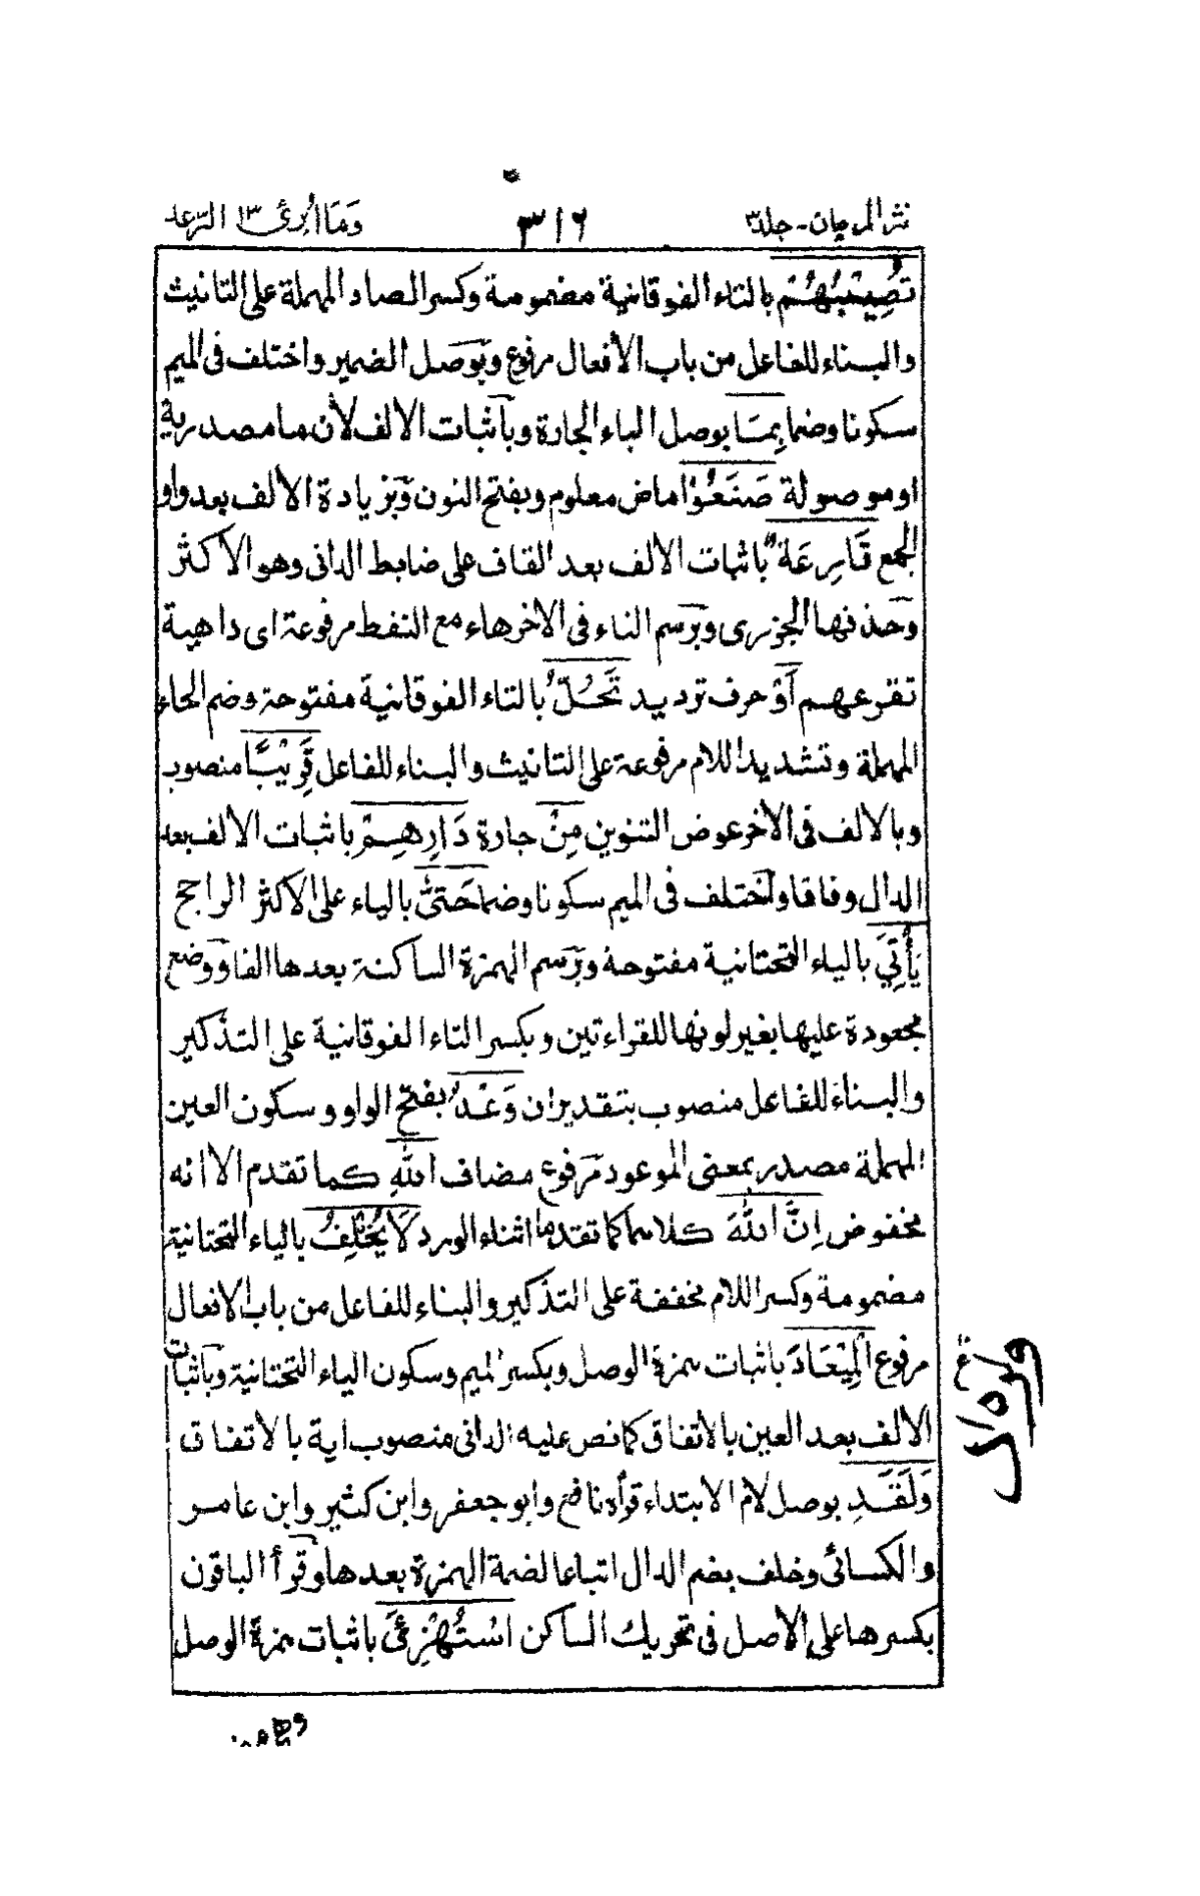 نثر المرجان - جلد ٣
٣١٦
وَمَا أُبَرِّئُ ١٣ الرّعد
تُصِيْبُهُمْ بالتاء الفوقانية مضمومة وكسر الصاد المهملة على التانيث
والبناء للفاعل من باب الأفعال مرفوع وبوصل الضمير واختلف فى الميم
سكونا وضما بِمَا بوصل الباء الجارة وبآثبات الالف لأن ما مصدرية
او موصولة صَنَعُوْا ماض معلوم وبفتح النون وبزيادة الالف بعد واو
الجمع قَارِعَةٌ باثبات الالف بعد القاف على ضابط الدانى وهو الاكثر
وحذفها الجزرى وبرسم التاء فى الاخر هاء مع النقط مرفوعة اى داهية
تقرعهم أَوْ حرف ترديد تَحُلُّ بالتاء الفوقانية مفتوحة وضم الحاء
المهملة وتشديد اللام مرفوعة على التانيث والبناء للفاعل قَرِيْبًا منصوب
وبالالف فى الأخر عوض التنوين مِنْ جارة دَارِهِمْ باثبات الالف بعد
الدال وفاقا واختلف فى الميم سكونا وضما حَتىّٰ بالياء على الاكثر الراجح
يَأْتِيَ بالياء التحتانية مفتوحة وبرسم الهمزة الساكنة بعدها الفا ووضع
مجعودة عليها بغير لونها للقراءتين وبكسر التاء الفوقانية على التذكير
والبناء للفاعل منصوب بتقدير ان وَعْدُ بفتح الواو وسكون العين
المهملة مصدر بمعنى الموعود مرفوع مضاف اللّٰهِ كما تقدم الا انه
مخفوض اِنَّ اللّٰهَ كلاهما كما تقدما اثناء الورد لَا يُخْلِفُ بالياء التحتانية
مضمومة وكسر اللام مخففة على التذكير والبناء للفاعل من باب الافعال
مرفوع الْمِيْعَادَ باثبات همزة الوصل وبكسر الميم وسكون الياء التحتانية وبآثبات
الالف بعد العين بالاتفاق كما نص عليه الدانى منصوب اية بالاتفاق
وَلَقَدِ بوصل لام الابتداء قرأه نافع وابو جعفر وابن كثير وابن عامر
والكسائى وخلف بضم الدال اتباعا لضمة الهمزة بعدها وقرأ الباقون
بكسرها على الاصل فى تحريك الساكن اسْتُهْزِئَ باثبات همزة الوصل